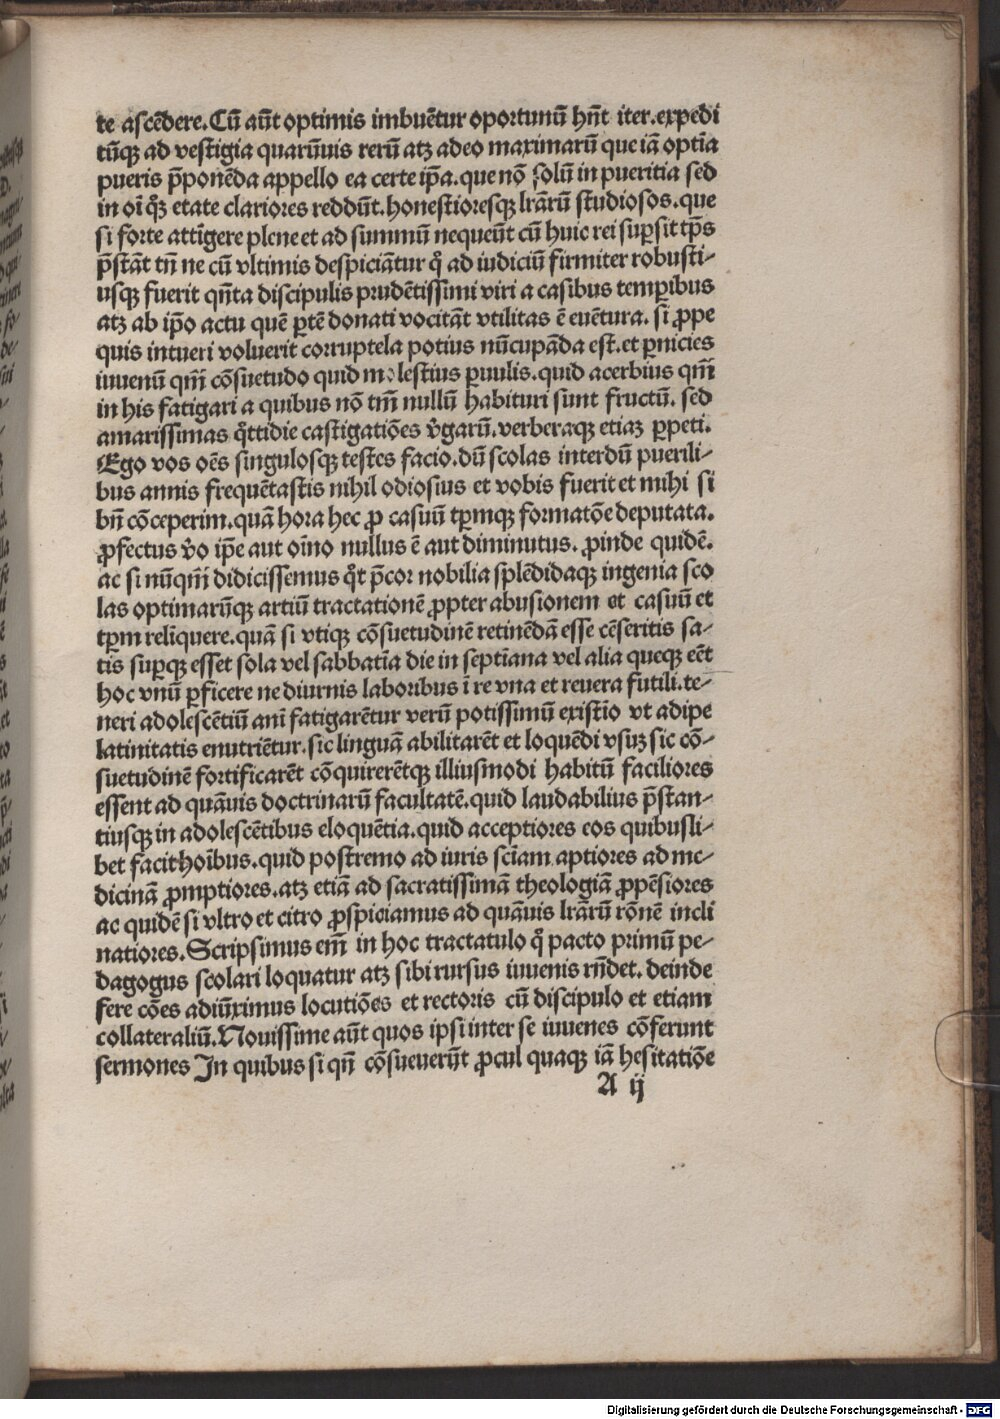 te ascēdere.Cū aūt optimis imbuēt̄ur oportunū hn̄t iter.expedi
tūqꝫ ad vestigia quarūuis rerū atqꝫ adeo maximarū que iā optīa
pueris p̄ponēda appello ea certe ip̄a.que nō solū in pueritia sed
in oī qꝫ etate clariores reddūt.honestioresqꝫ lr̄arū studiosos.que
si forte attīgere plene et ad summū nequeūt cū huic rei suꝑsit tp̄s
p̄stāt tn̄ ne cū vltimis despiciātur qͥ ad iudiciū firmiter robusti-
usqꝫ fuerit qn̄ta discipulis prudētissimi viri a casibus temꝑibus
atꝫ ab ip̄o actu quē ꝑtē donati vocitāt vtilitas ē euētura. si ꝓpe
quis intueri voluerit corruptela potius nūcupāda est.et ꝑnicies
iuuenū qm̄ cōsuetudo quid molestius ꝑuulis.quid acerbius qm̄
in his fatigari a quibus nō tm̄ nullū habituri sunt fructū. sed
amarissimas qͦttidie castigatiōes v̄garū.verberaqꝫ etiaꝫ ꝑpeti.
Ego vos oēs singulosqꝫ testes facio.dū scolas interdū puerili-
bus annis frequētastis nihil odiosius et vobis fuerit et mihi si
bn̄ cōceperim.quā hora hec ꝓ casuū tꝑmqꝫ formatōe deputata.
ꝓfectus v̄o ip̄e aut oīno nullus ē aut diminutus. ꝓinde quidē.
ac si nūqm̄ didicissemus qͦt p̄cor nobilia splēdidaqꝫ ingenia sco
las optimarūqꝫ artiū tractationē ꝓpter abusionem et casuū et
tꝑm relīquere.quā si vtiqꝫ cōsuetudinē retinēdā esse cēseritis sa-
tis suꝑqꝫ esset sola vel sabbatīa die in septīana vel alia queqꝫ eēt
hoc vnū ꝑficere ne diurnis laboribus ī re vna et reuera futili.te-
neri adolescētiū anī fatigarētur verū potissimū existīo vt adipe
latinitatis enutriētur.sic linguā abilitarēt et loquēdi vsuꝫ sic cō-
suetudinē fortificarēt cōquirerētqꝫ illiusmodi habitū faciliores
essent ad quāuis doctrinarū facultatē.quid laudabilius p̄stan-
tiusqꝫ in adolescētibus eloquētia.quid acceptiores eos quibusli-
bet facit hoībus.quid postremo ad iuris sciam aptiores ad me-
dicinā ꝓmptiores.atꝫ etiā ad sacratissimā theologiā ꝓpēsiores
ac quidē si vltro et citro ꝓspiciamus ad quāuis lr̄arū rōnē incli
natiores.Scripsimus em̄ in hoc tractatulo qͦ pacto primū pe-
dagogus scolari loquatur atꝫ sibi rursus iuuenis rn̄det. deinde
fere cōes adiūximus locutiōes et rectoris cū discipulo et etiam
collateraliū.Nouissime aūt quos ipsi inter se iuuenes cōferunt
sermones In quibus si qn̄ cōsueuerūt ꝓcul quaqꝫ iā hesitatiōe
A ij
Digitalisierung gefördert durch die Deutsche Forschungsgemeinschaft - DFG